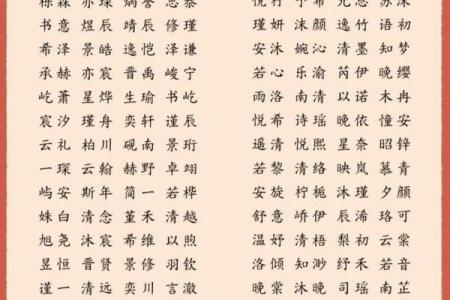 栎森 亦琛 炳誉 忠泰 悦竹 予希 允思 苏沫
书意 煜辰 靖辰 修瑾 瑾妍 沫颜 逸竹 语初
希泽 景皓 逸恺 泽谦 安沐 婉沁 清墨 知梦
承赫 亦宸 晋禹 峻宁 若心 乐渝 芮伊 晚缨
屹萧 星烨 生瑜 书屹 雨洛 南清 以诺 木冉
宸汐 瑾舟 奕轩 谨辰 悦希 诗瑶 晚依 憧安
云礼 柏川 砚南 景珩 遥清 悦熙 星奈 昭锌
一琛 云翰 赫野 卓翊 若黎 清络 映岚 慕青
屿安 斯年 简一 若桦 安旋 柠栀 沐瑾 夕颜
姝白 清念 董禾 清越 舒意 峤伊 辰浠 珞可
旭尧 沐宸 希维 以煦 温妤 清梧 梨初 云棠
昱恒 晋贤 景修 羽钦 洛倾 知渺 纾禾 若南
谨一 清远 奕川 言澈 晚棠 知妤 司瑶 南芷